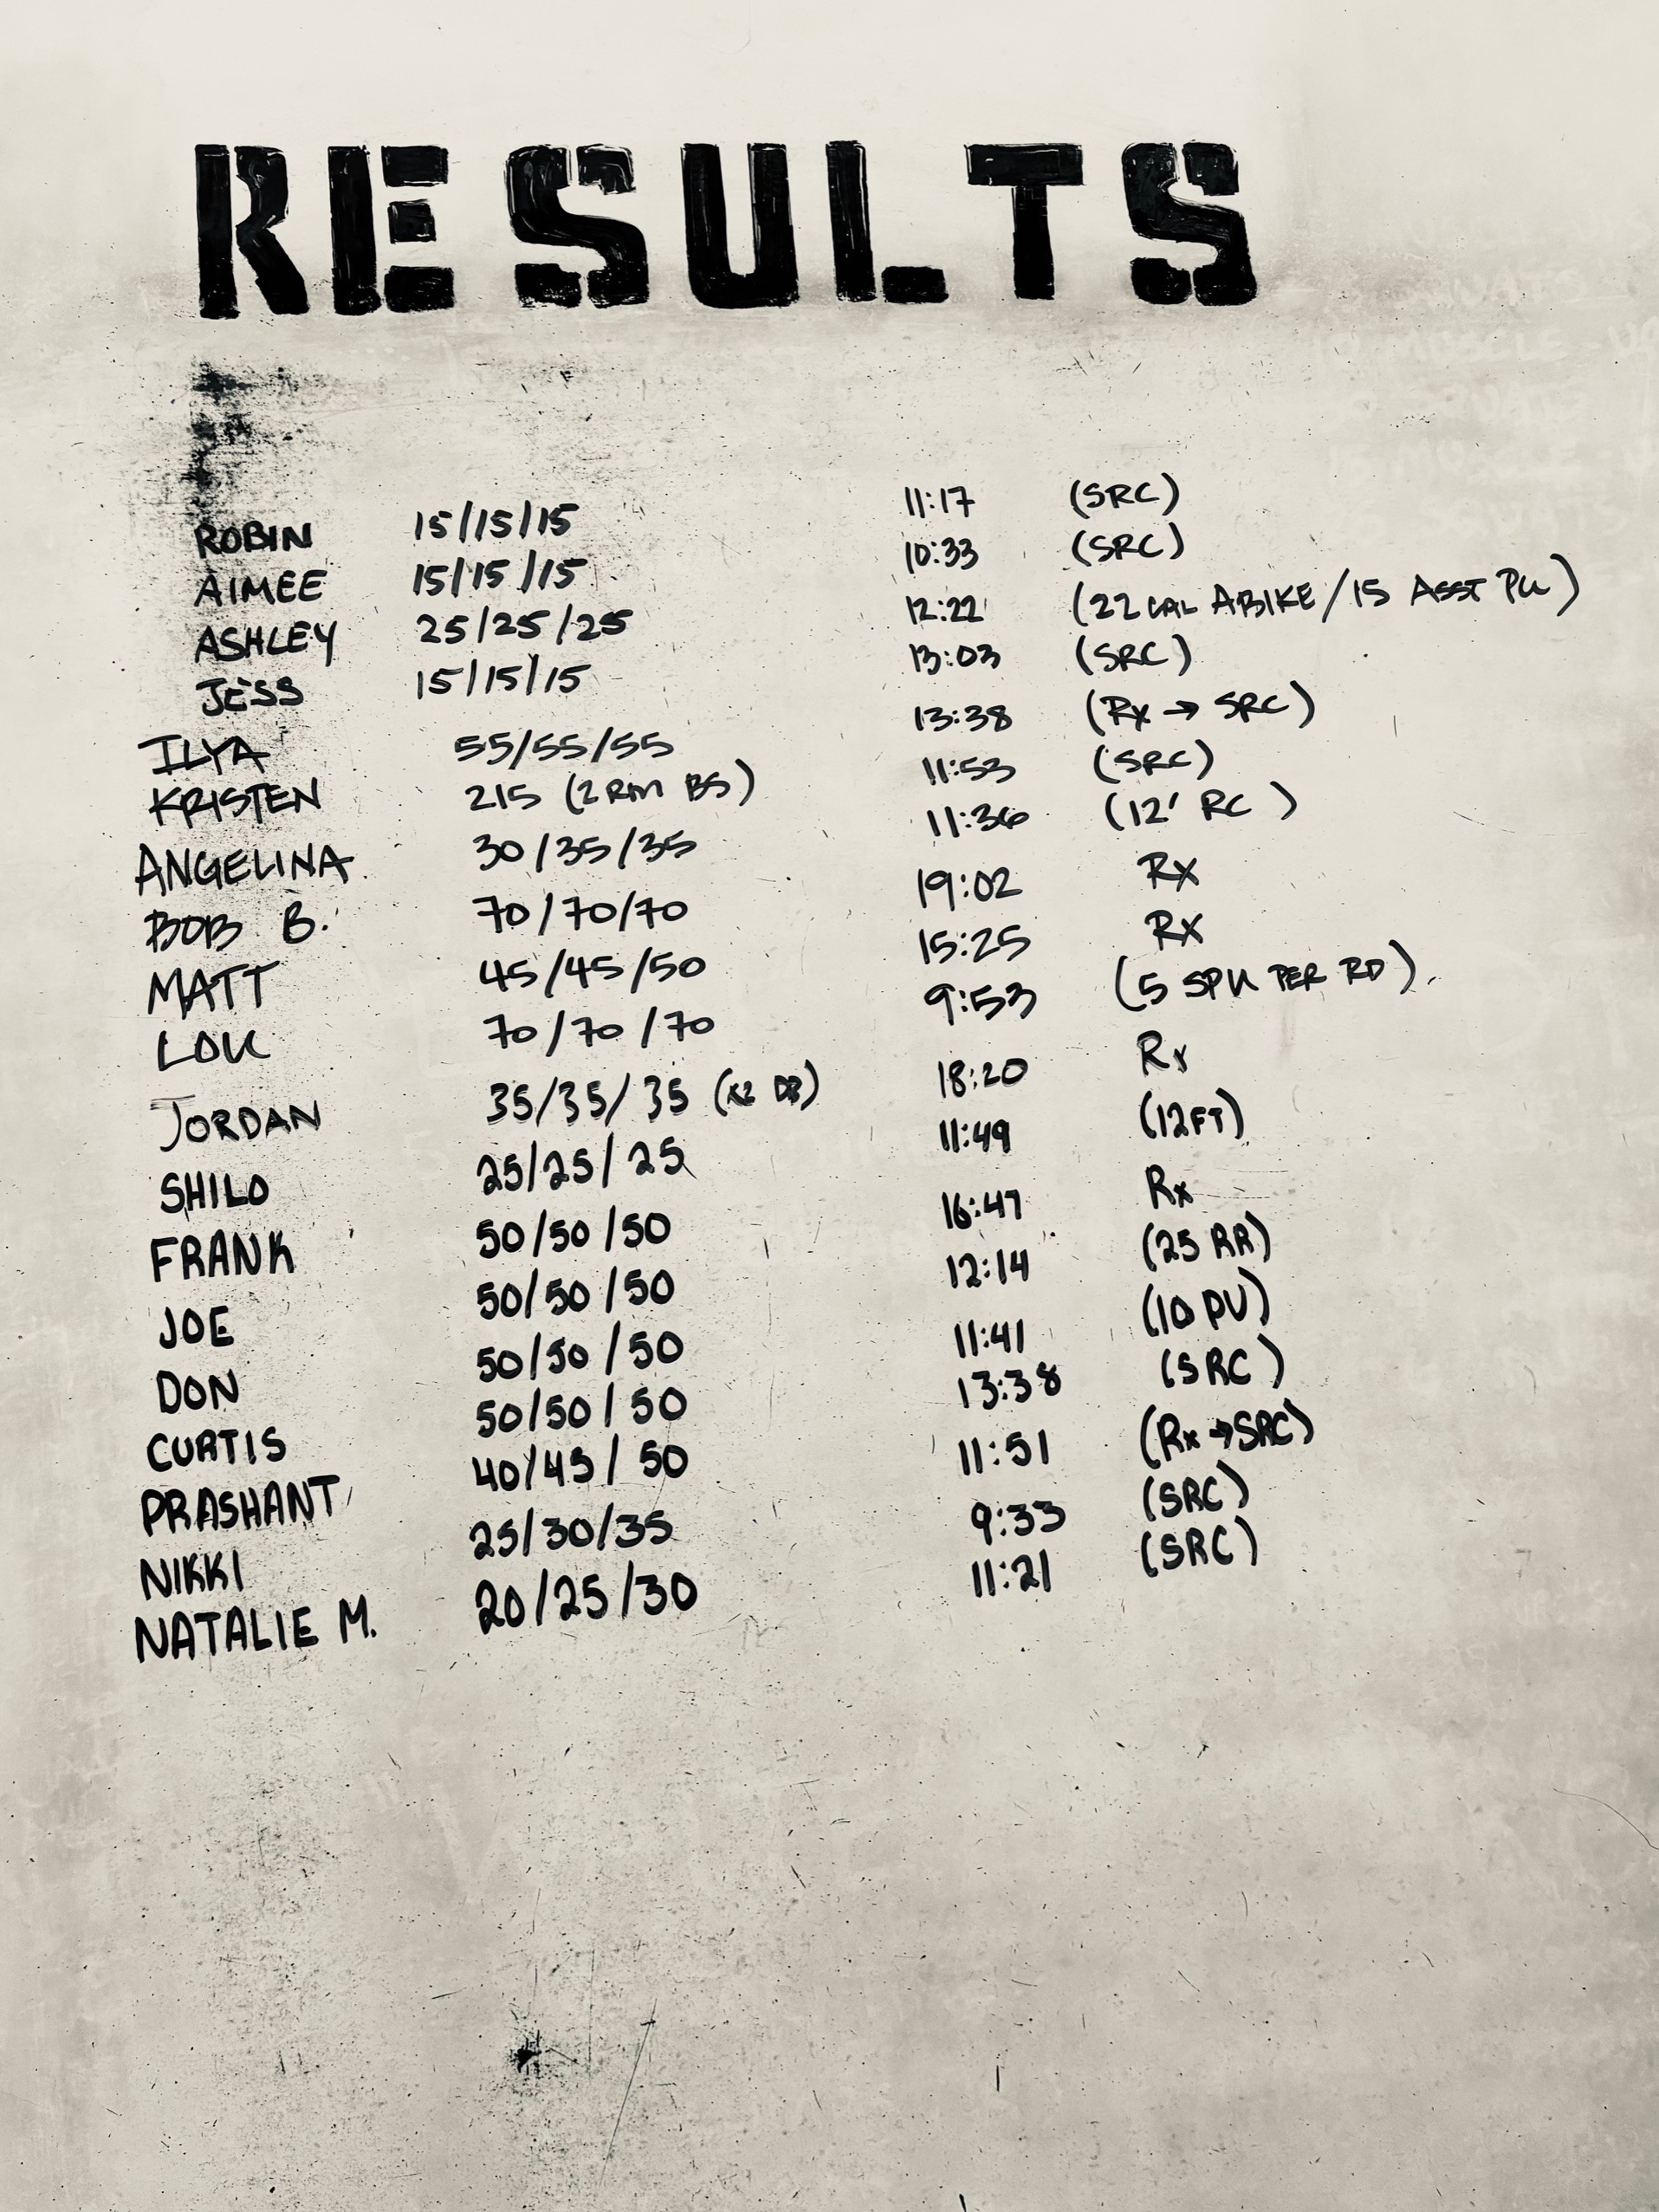 RESULTS
ROBIN 15/15/15 11:17 (SRC)
AIMEE 15/15/15 10:33 (SRC)
ASHLEY 25/25/25 12:22 (22 CAL ABIKE/15 ASST PU)
JESS 15/15/15 13:03 (SRC)
ILYA 55/55/55 13:38 (Rx → SRC)
KRISTEN 215 (2 RM BS) 11:53 (SRC)
ANGELINA 30/35/35 11:36 (12' RC)
BOB B. 70/70/70 19:02 Rx
MATT 45/45/50 15:25 Rx
LOU 70/70/70 9:53 (5 SPU PER RD)
JORDAN 35/35/35 (x2 DB) 18:20 Rx
SHILO 25/25/25 11:49 (12FT)
FRANK 50/50/50 16:47 Rx
JOE 50/50/50 12:14 (25 RR)
DON 50/50/50 11:41 (10 PU)
CURTIS 50/50/50 13:38 (SRC)
PRASHANT 40/45/50 11:51 (Rx → SRC)
NIKKI 25/30/35 9:33 (SRC)
NATALIE M. 20/25/30 11:21 (SRC)